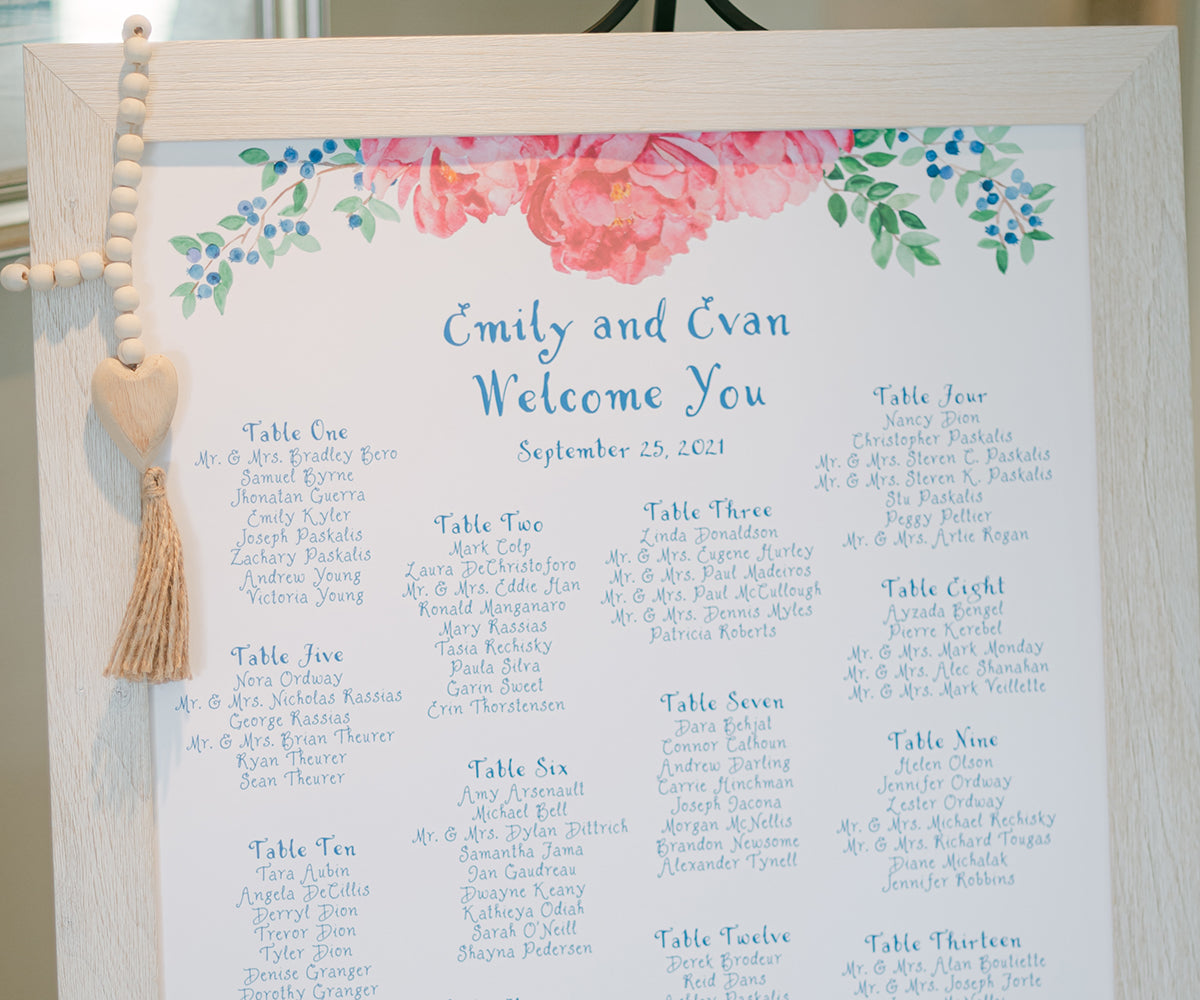 Emily and Evan
Welcome You
September 25, 2021
Table One
Mr. & Mrs. Bradley Bero
Samuel Byrne
Jhonatan Guerra
Emily Kyler
Joseph Paskalis
Zachary Paskalis
Andrew Young
Victoria Young
Table Two
Mark Colp
Laura DeChristoforo
Mr. & Mrs. Eddie Han
Ronald Manganaro
Mary Rassias
Tasia Rechisky
Paula Silva
Garin Sweet
Erin Thorstensen
Table Three
Linda Donaldson
Mr. & Mrs. Eugene Hurley
Mr. & Mrs. Paul Madeiros
Mr. & Mrs. Paul McCullough
Mr. & Mrs. Dennis Myles
Patricia Roberts
Table Four
Nancy Dion
Christopher Paskalis
Mr. & Mrs. Steven C. Paskalis
Mr. & Mrs. Steven K. Paskalis
Stu Paskalis
Peggy Peltier
Mr. & Mrs. Artie Rogan
Table Five
Nora Ordway
Mr. & Mrs. Nicholas Rassias
George Rassias
Mr. & Mrs. Brian Theurer
Ryan Theurer
Sean Theurer
Table Six
Amy Arsenault
Michael Bell
Mr. & Mrs. Dylan Dittrich
Samantha Fama
Jan Gaudreau
Dwayne Keany
Kathieya Odiah
Sarah O'Neill
Shayna Pedersen
Table Seven
Dara Behjat
Connor Calhoun
Andrew Darling
Carrie Hinchman
Joseph Iacona
Morgan McNellis
Brandon Newsome
Alexander Tynell
Table Eight
Ayzada Bengel
Pierre Kerebel
Mr. & Mrs. Mark Monday
Mr. & Mrs. Alec Shanahan
Mr. & Mrs. Mark Veillette
Table Nine
Helen Olson
Jennifer Ordway
Lester Ordway
Mr. & Mrs. Michael Rechisky
Mr. & Mrs. Richard Tougas
Diane Michalak
Jennifer Robbins
Table Ten
Tara Aubin
Angela DeCillis
Derryl Dion
Trevor Dion
Tyler Dion
Denise Granger
Dorothy Granger
Table Twelve
Derek Brodeur
Reid Dans
Paskalis
Table Thirteen
Mr. & Mrs. Alan Boutiette
Mr. & Mrs. Joseph Forte